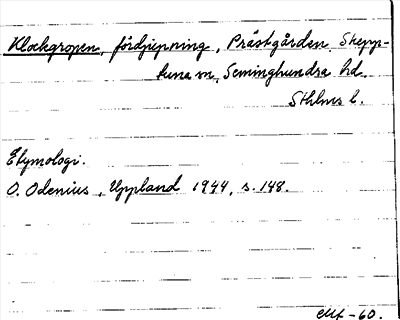 Klockgropen, fördjupning, Prästgården, Skepp-
tuna sn, Seminghundra hd.
Sthlms l.
Etymologi.
O. Odenius, Uppland 1944, s. 148.
-60.